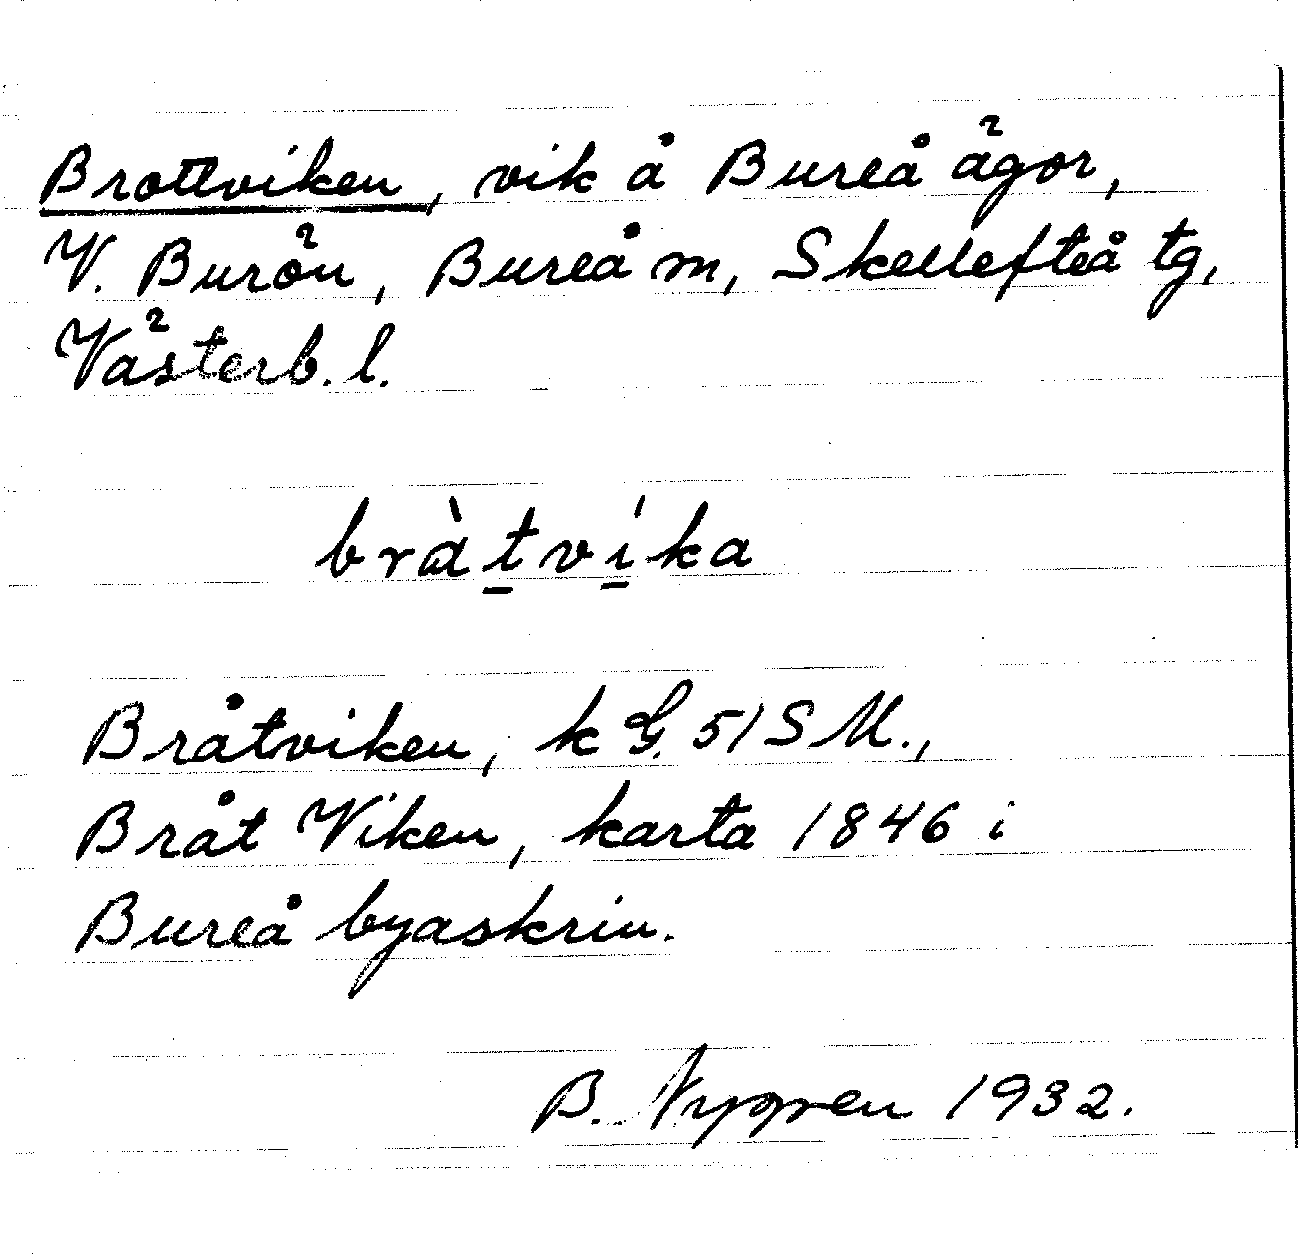 Brottviken, vik å Bureå ägor,
V. Burön, Bureå m, Skellefteå tg,
Västerb. l.
bràt̲ví̲ka
Bråtviken, k G. 51 S M.,
Bråt Viken, karta 1846 i
Bureå byaskrin.
B. Nygren 1932.